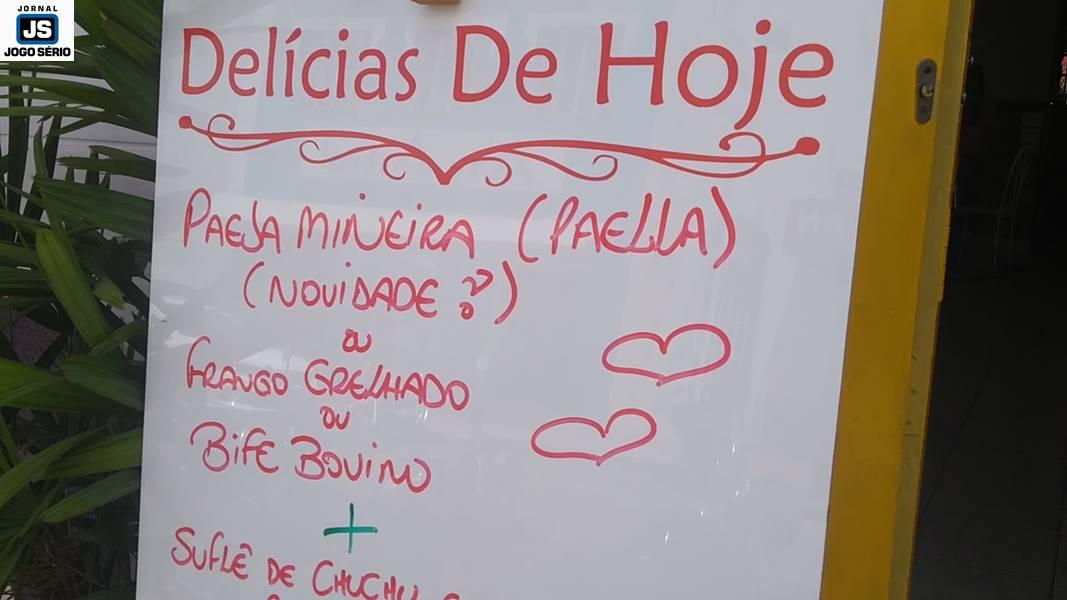 JORNAL
JS
JOGO SÉRIO
Delícias De Hoje
PAEJA MINEIRA (PAELLA)
(NOVIDADE
ou
FRANGO GRELHADO
ou
BIFE BOVINO
+
SUFLÊ DE CHUCHU